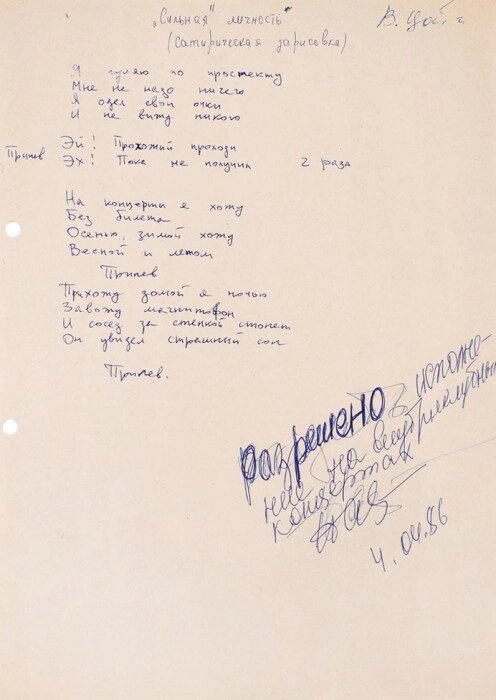 „Сильная" личность"
В. Цой
(сатирическая зарисовка)
Я гуляю по проспекту
Мне не надо ничего
Я одел свои очки
И не вижу никого
Припев Эй! Прохожий проходи
Эх! Пока не получил 2 раза
На концерты я хожу
Без билета
Осенью, зимой хожу
Весной и летом
Припев
Прихожу домой я ночью
Завожу магнитофон
И сосед за стенкой стонет
Он увидел страшный сон
Припев.
разрешено исполне-
ние на внутриклубных
концертах
4.04.86